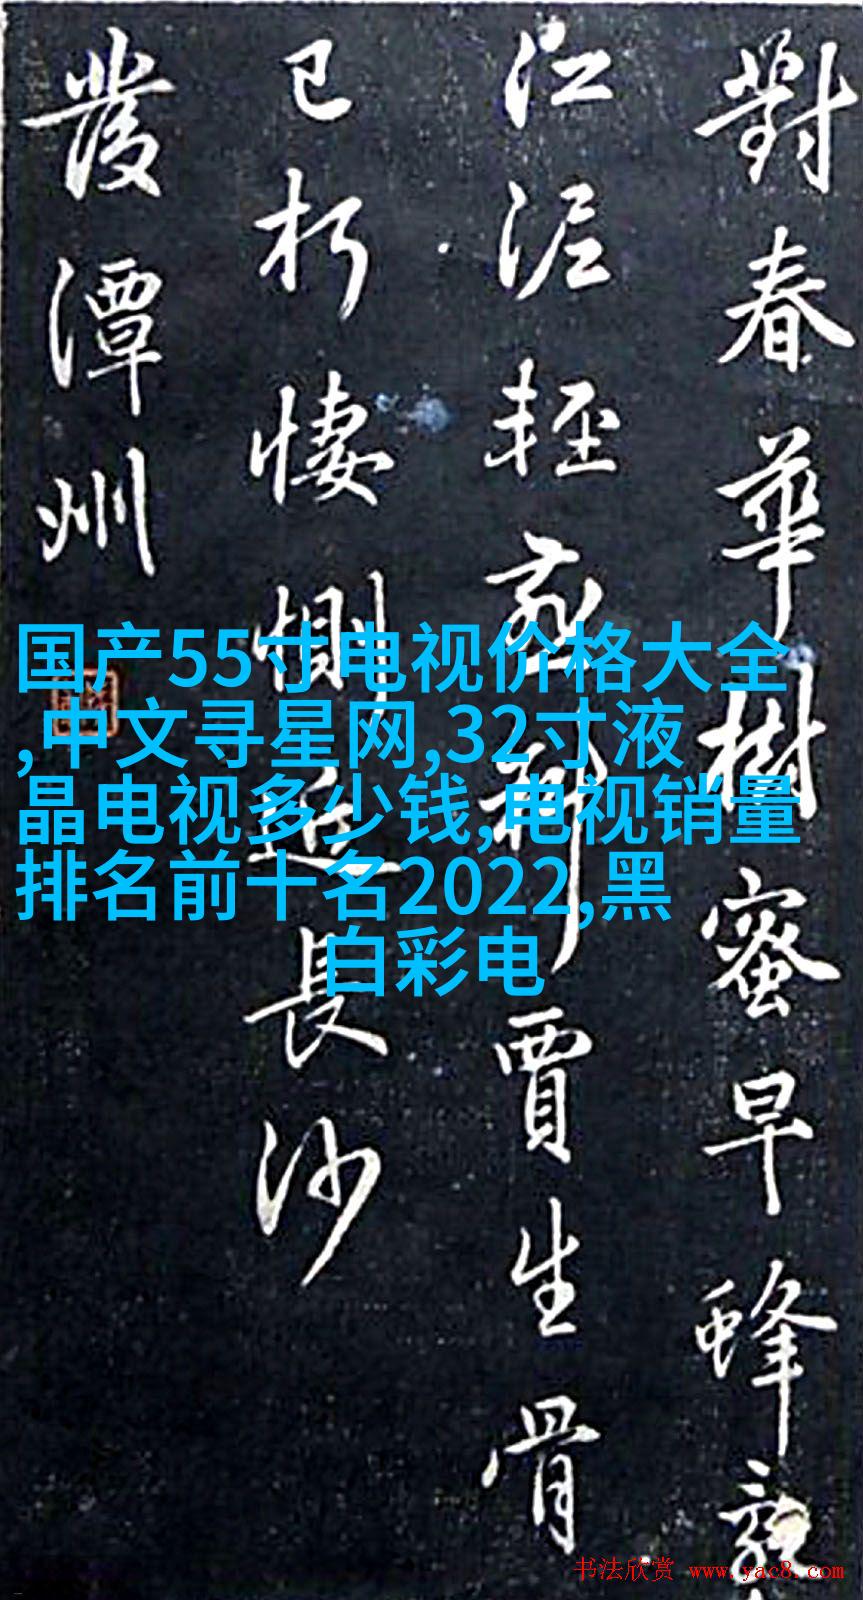 對春華樹蜜早蜂
江泥輕燕斜賈生骨
已朽悽惻近長沙
發潭州
国产55寸电视价格大全
,中文寻星网,32寸液
晶电视多少钱,电视销量
排名前十名2022,黑
白彩电
书法欣赏 www.yac8.com